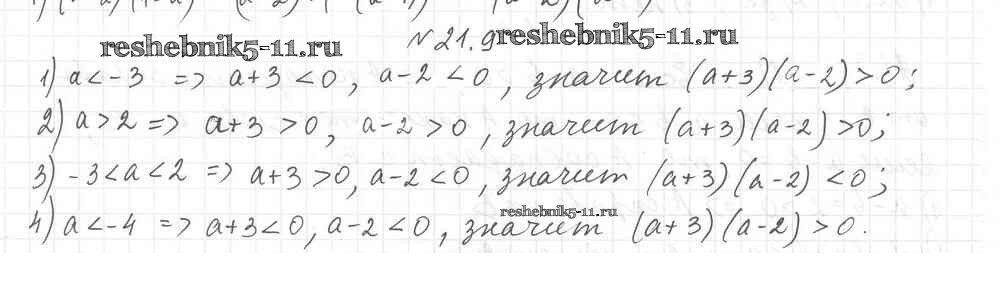 reshebnik5-11.ru № 21.9 reshebnik5-11.ru
1) a < -3 => a+3 < 0, a-2 < 0, значит (a+3)(a-2) > 0;
2) a > 2 => a+3 > 0, a-2 > 0, значит (a+3)(a-2) > 0;
3) -3 < a < 2 => a+3 > 0, a-2 < 0, значит (a+3)(a-2) < 0;
reshebnik5-11.ru
4) a < -4 => a+3 < 0, a-2 < 0, значит (a+3)(a-2) > 0.